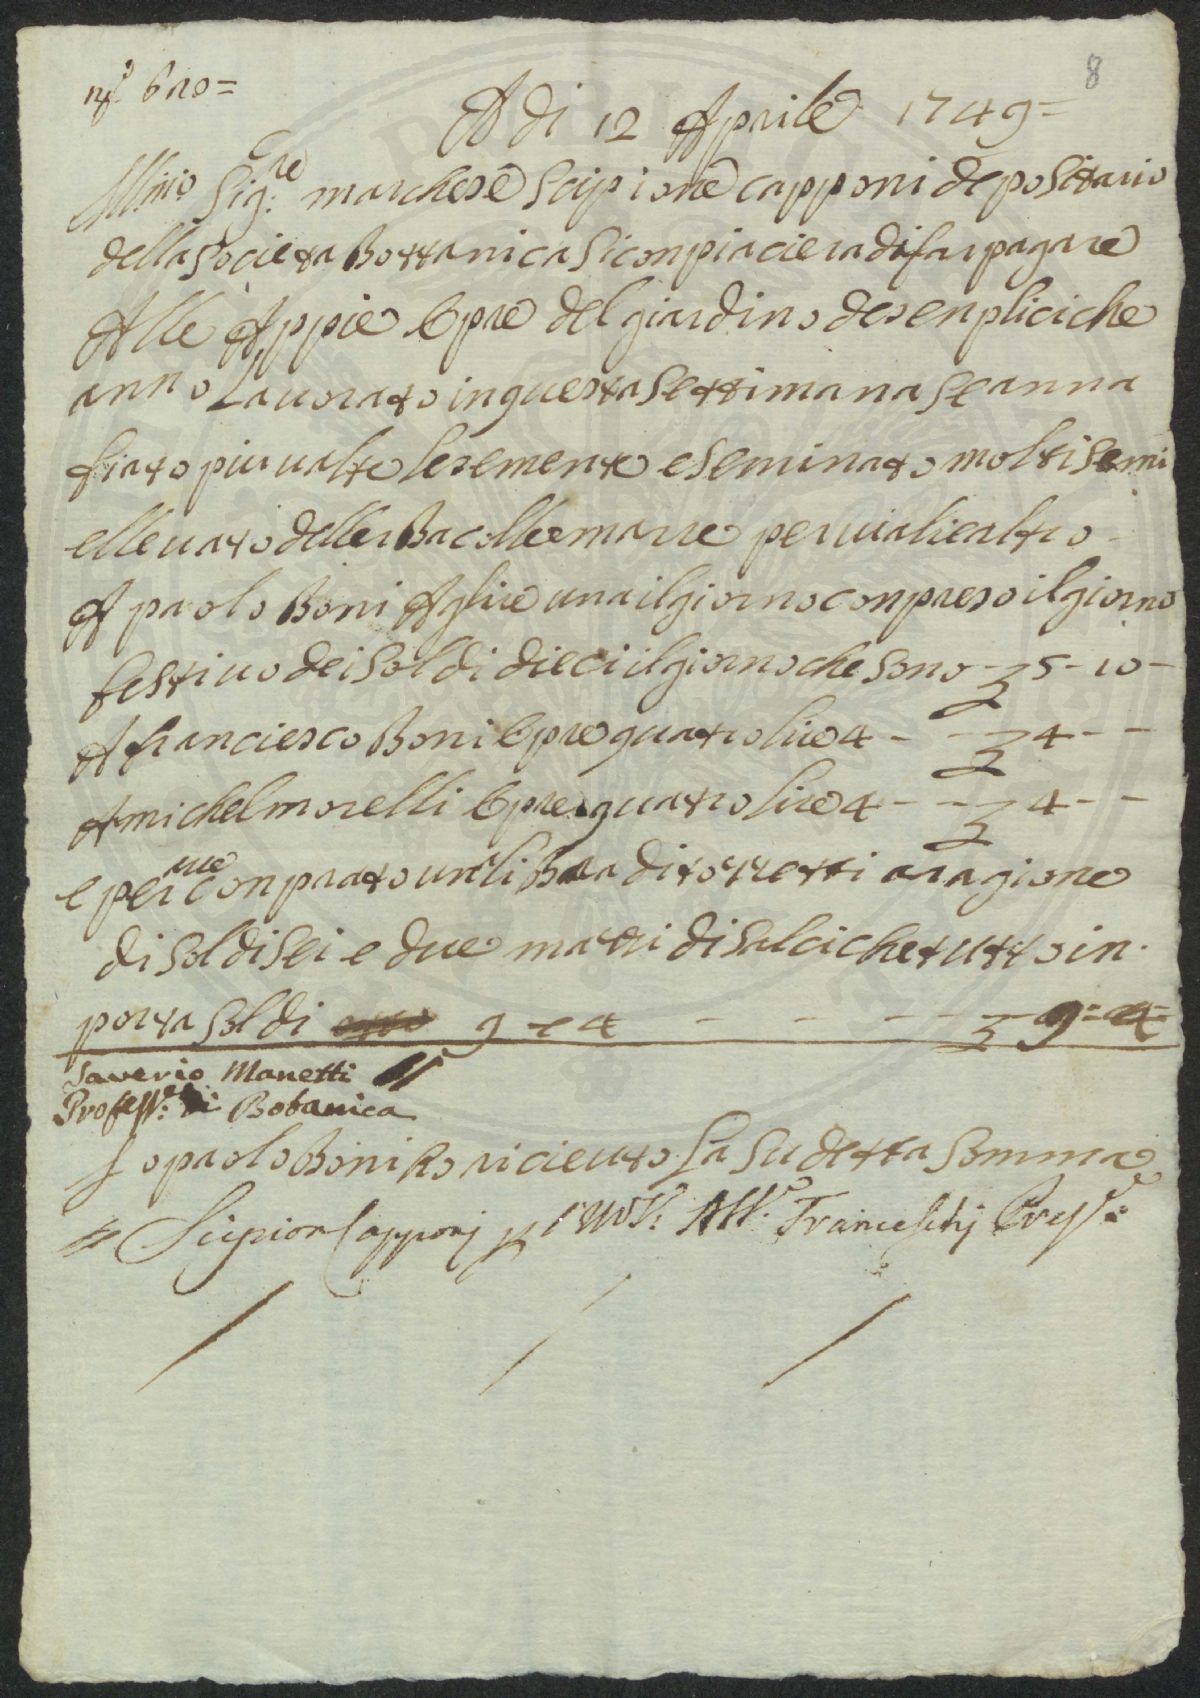 8
nº 610=
A di 12 Aprile 1749=
Illmo Sig:re marchese Scipione capponi depositario
della Societa Bottanica Si conpiaciera di far pagare
Alle Appie Opre del giardino de senplici che
anno Lavorato in questa Settimana Se anna
fiato piu volte le semente e seminato molti semi
ellevato dell erBa colle marre per viali e altro
A paolo Boni A lire una il giorno conpreso il giorno
festivo dei Soldi dieci il giorno che sono - £ 5 - 10 -
A franciesco Boni Opre quatro lire 4 - - £ 4 - -
A michel morelli Opre quatro lire 4 - - - £ 4 - -
e per ave conprato un liBra di torzetti a ragione
di Soldi Sei e due mazzi di Salci che tutto in
porta Soldi otto 9 e 4 - - - - £ - 9 = 4
Saverio Manetti
Profess:e di Botanica
Io paolo Boni ho ricieuto La Sudetta Somma
Scipion Capponj
Franceschj